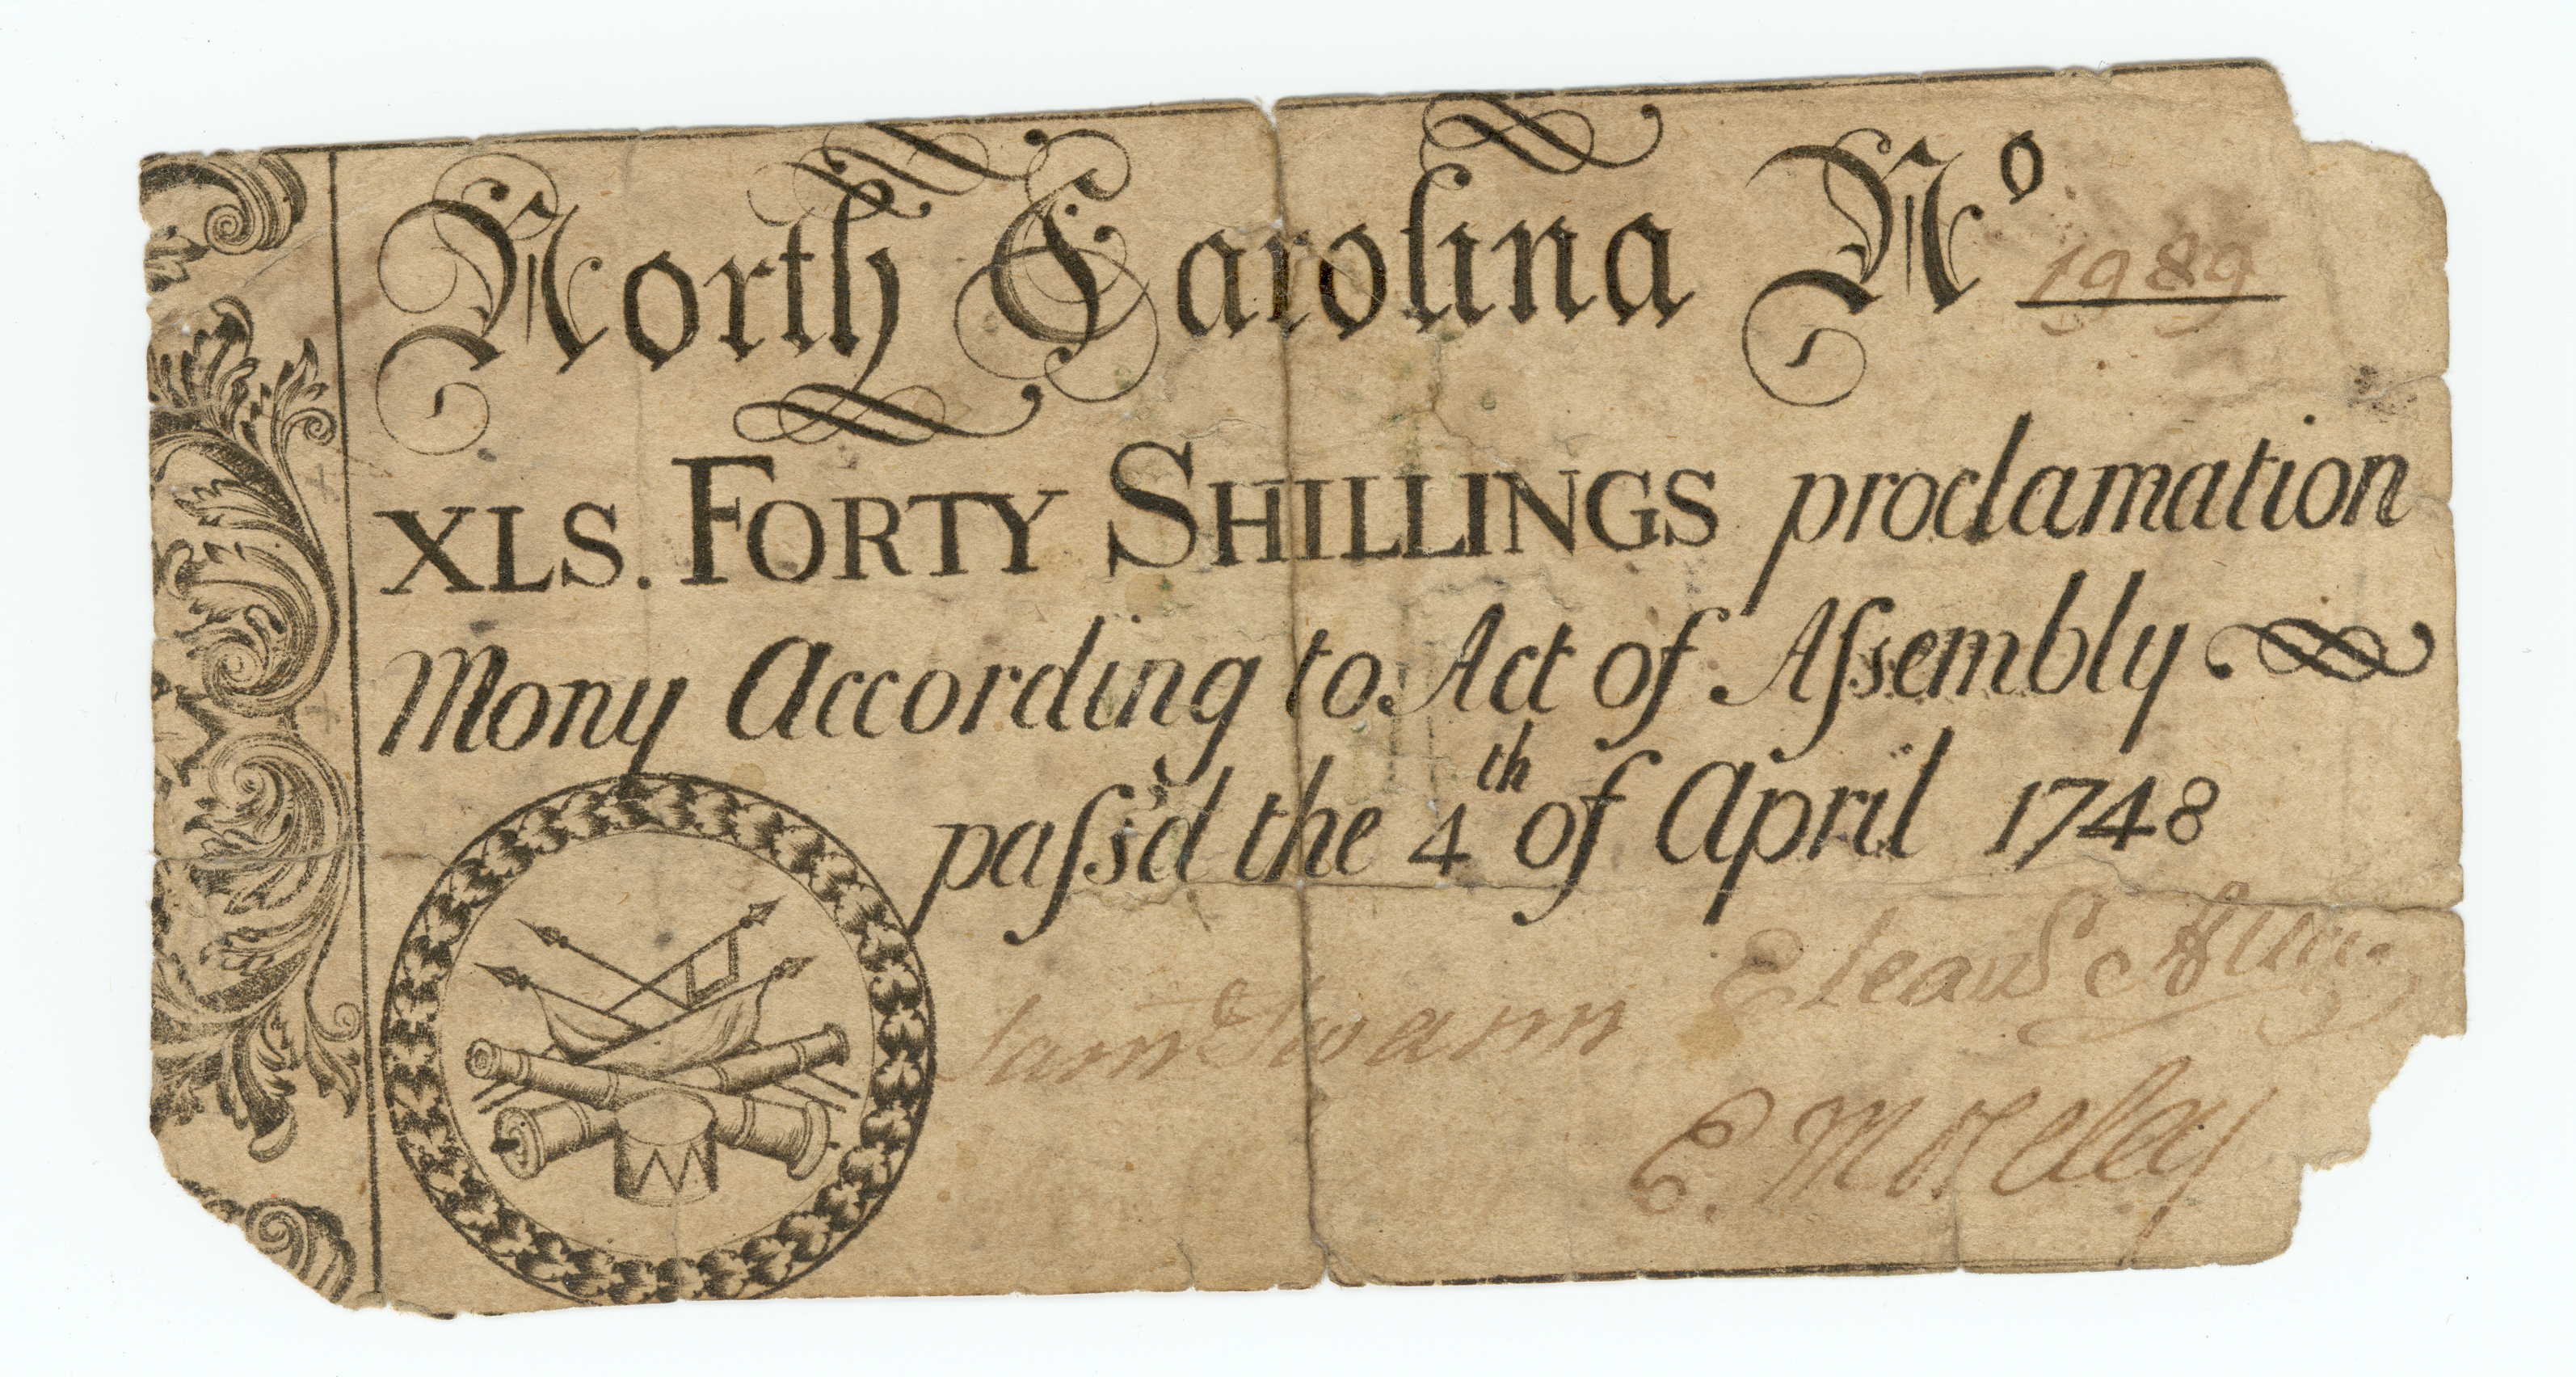 North Carolina No 1989
XLS. FORTY SHILLINGS proclamation
Mony According to Act of Aſsembly
paſs'd the 4th of April 1748
Eleaz Allen
Sam Swann
E. Moseley